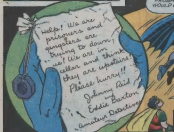 Help! We are
prisoners and
smugglers are
trying to down
us! We are in
cellar and think
they are upstairs
Please hurry!!
Johnny Reid
Eddie Barton
Amateur Detectives